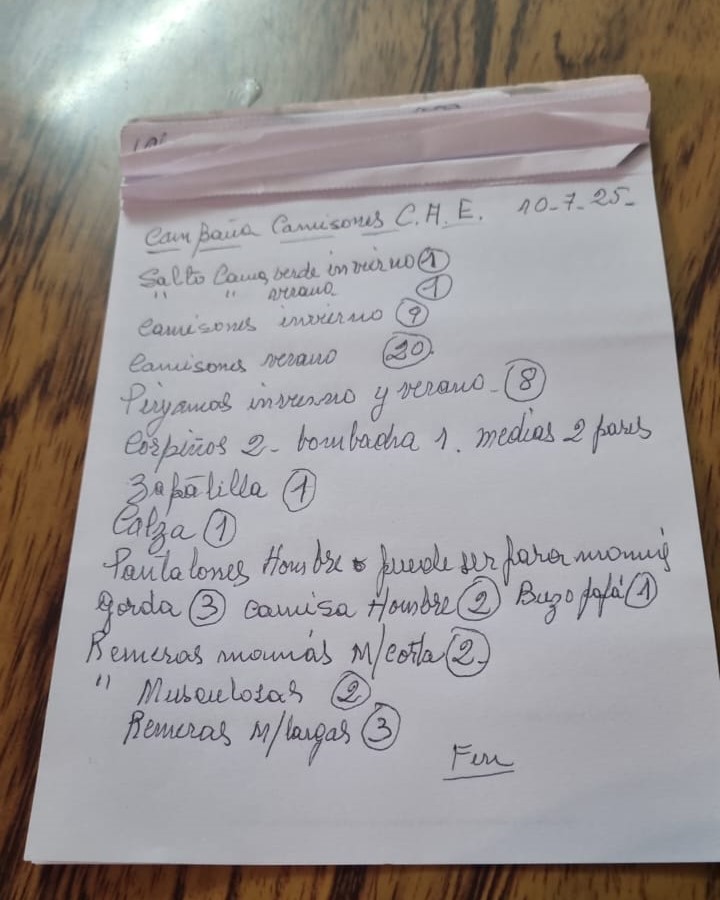 Campaña Camisones C.H.E. 10-7-25-
Salto Cama verde invierno 1
" " verano 1
Camisones invierno 9
Camisones verano 20.
Piryamas invierno y verano- 8
Corpiños 2- bombacha 1. medias 2 pares
Zapatilla 1
Calza 1
Pantalones Hombre puede ser para mamá
gorda 3 camisa Hombre 2 Buzo papá 1
Remeras mamás M/corta 2
" Musculosas 2
Remeras M/largas 3
Fin